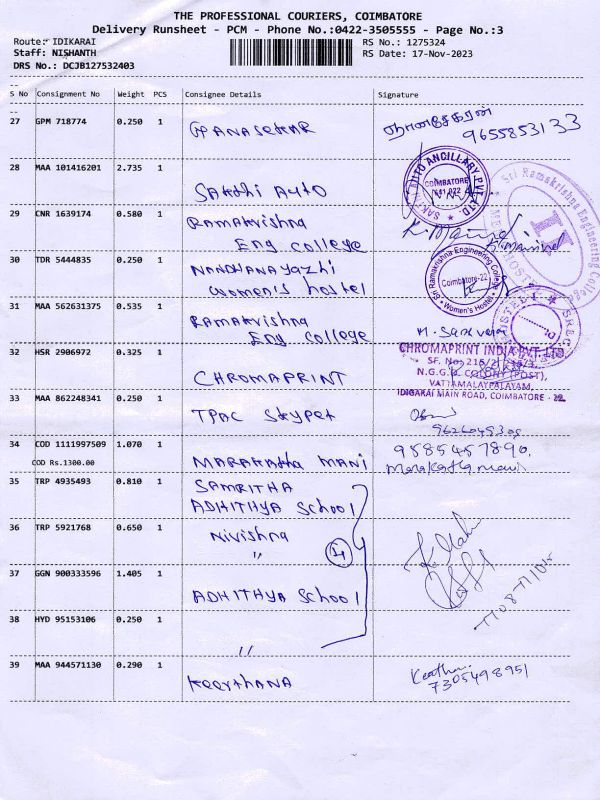 THE PROFESSIONAL COURIERS, COIMBATORE
Delivery Runsheet - PCM - Phone No.:0422-3505555 - Page No.:3
Route: IDIKARAI
RS No.: 1275324
Staff: NISHANTH
RS Date: 17-Nov-2023
DRS No.: DCJB127532403
S No Consignment No Weight PCS Consignee Details Signature
27 GPM 718774 0.250 1 GNANASEKAR ஞானசேகரன்
9655853133
28 MAA 101416201 2.735 1 SAKthi AUTO
SAKTHI AUTO ANCILLARY PVT LTD
COIMBATORE
641 022
29 CNR 1639174 0.580 1 RAMAkrishna
Eng college
Sri Ramakrishna Engineering College
30 TDR 5444835 0.250 1 NANDHANAyazhi
women's hostel
Sri Ramakrishna Engineering College
Coimbatore-22
Women's Hostel
31 MAA 562631375 0.535 1 RAMAkrishna
Eng college
SREC
32 HSR 2906972 0.325 1 CHROMAPRINT
CHROMAPRINT INDIA PVT. LTD.
SF. No. 216/2
N.G.G.O. COLONY (POST),
VATTAMALAYPALAYAM,
IDIGARAI MAIN ROAD, COIMBATORE - 22
33 MAA 862248341 0.250 1 TPAC Skypet
34 COD 1111997509 1.070 1 MARAKAtha MANI
9585457890.
Marakathamani
COD Rs.1300.00
35 TRP 4935493 0.810 1 SAMRITHA
ADHITHYA School
36 TRP 5921768 0.650 1 Nivishna
"
4
37 GGN 900333596 1.405 1 ADHITHYA School
38 HYD 95153106 0.250 1
"
39 MAA 944571130 0.290 1 KeerthANA
7305498951